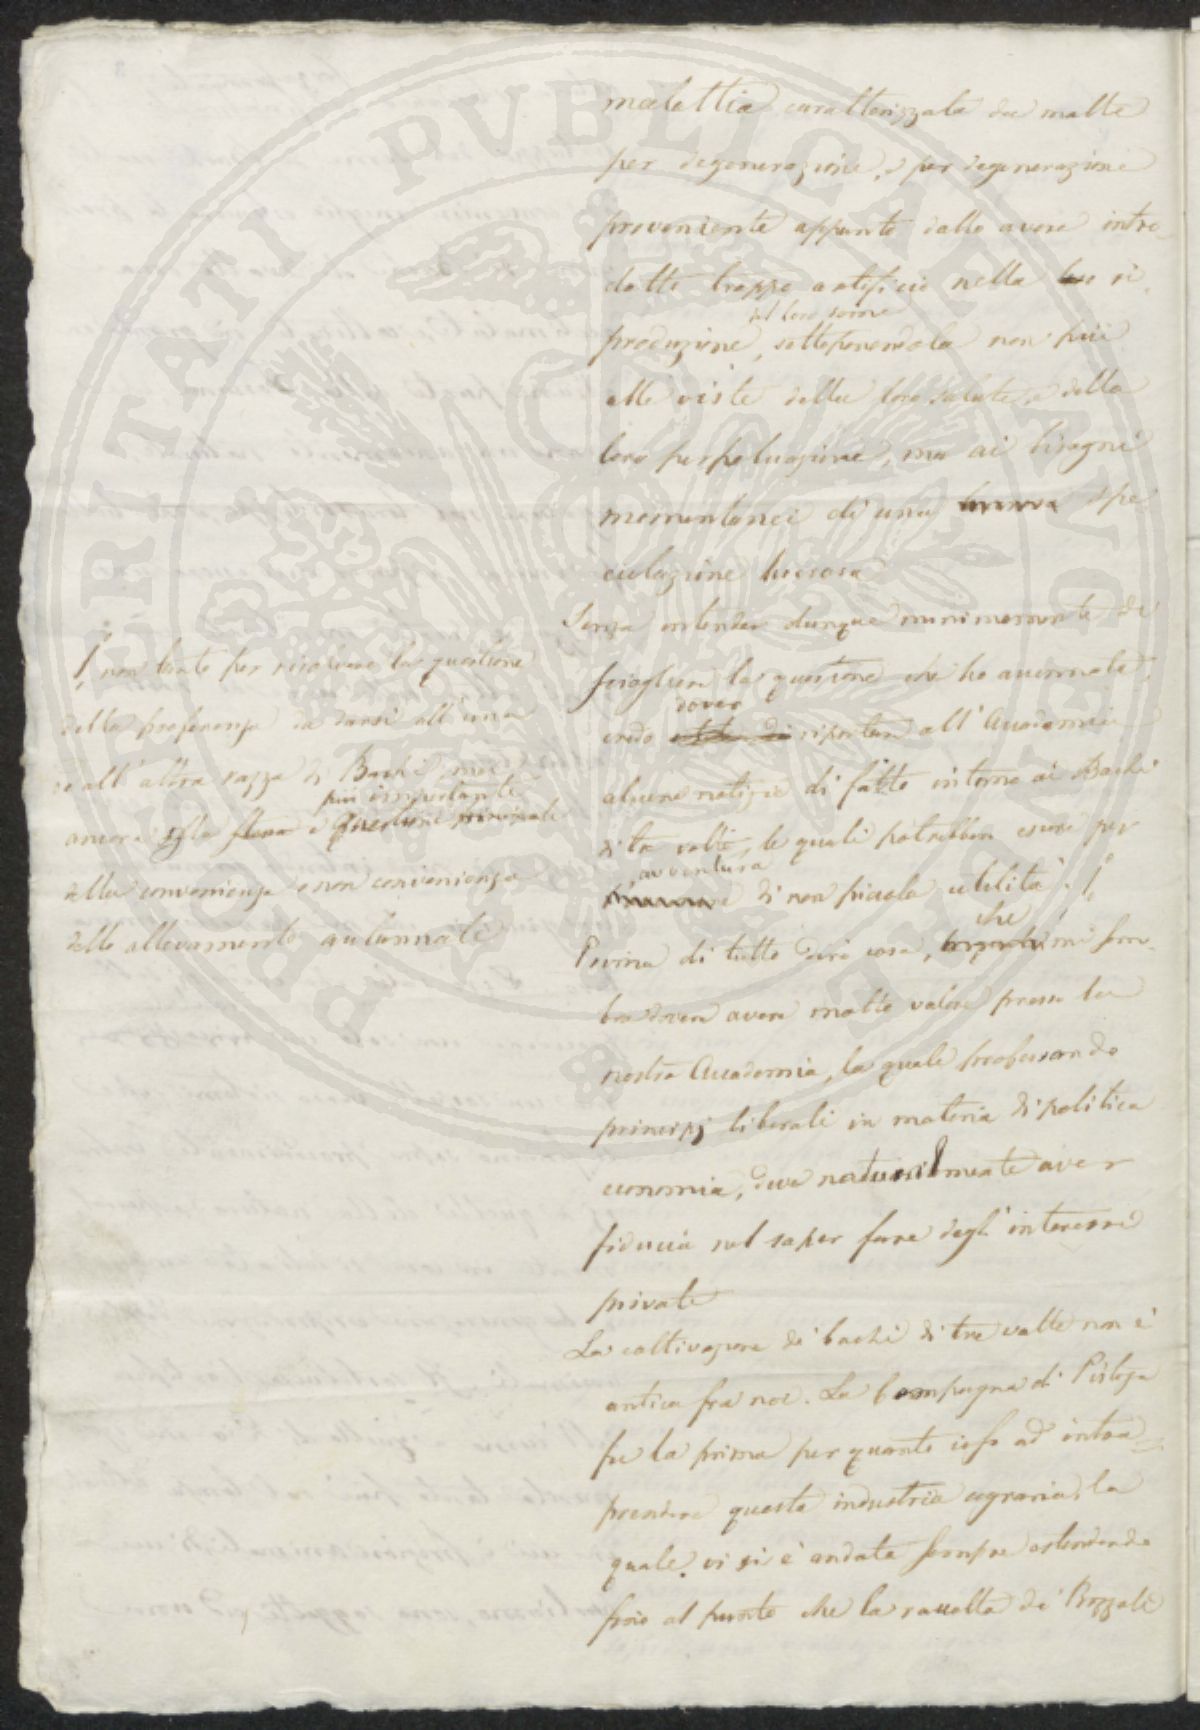 malattia caratterizzata da molti
per degenerazione, e per degenerazione
proveniente appunto dallo avere intro-
dotto troppo artificio nella ri-
del loro seme
produzione, sottoponendola non più
alle viste della loro salute, e della
loro perpetuazione, ma ai bisogni
momentanei di una spe
culazione lucrosa
Senza intender dunque minimamente di
sciogliere la questione che ho accennata,
dover
credo riportare all'Accademia
alcune notizie di fatto intorno ai Bachi
di tre volte, le quali potrebbero essere per
avventura
di non piccola utilità.
che
Prima di tutto dirò cosa, mi sem-
bra dovere avere molto valore presso la
nostra Accademia, la quale professando
principj liberali in materia di politica
economia, deve naturalmente aver
fiducia nel saper fare degl'interessi
privati
La coltivazione de' bachi di tre volte non è
antica fra noi. La Campagna di Pistoja
fu la prima per quanto io so ad intra-
prendere questa industria agraria, la
quale vi si è andata sempre estendendo
fino al punto che la raccolta di Bozzoli
non tanto per risolvere la questione
della preferenza da darsi all'una
o all'altra razza di Bachi, ma
più importante
ancora e questione principale
della convenienza o non convenienza
dello allevamento autunnale